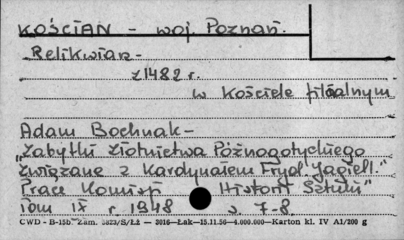 KOŚCIAN - woj. Poznań.
Relikwiarz -
z 1482 r.
w kościele filialnym
Adam Bochnak -
"Zabytki złotnictwa Późnogotyckiego
związane z Kardynałem Fryd. Jagiell."
Prace Komisji Historii Sztuki"
tom IX r. 1948 s. 7-8.
CWD - B-15b Zam. 5823/S/Łż — 2016—Łak—15.11.56—4.000.000—Karton kl. IV A1/200 g